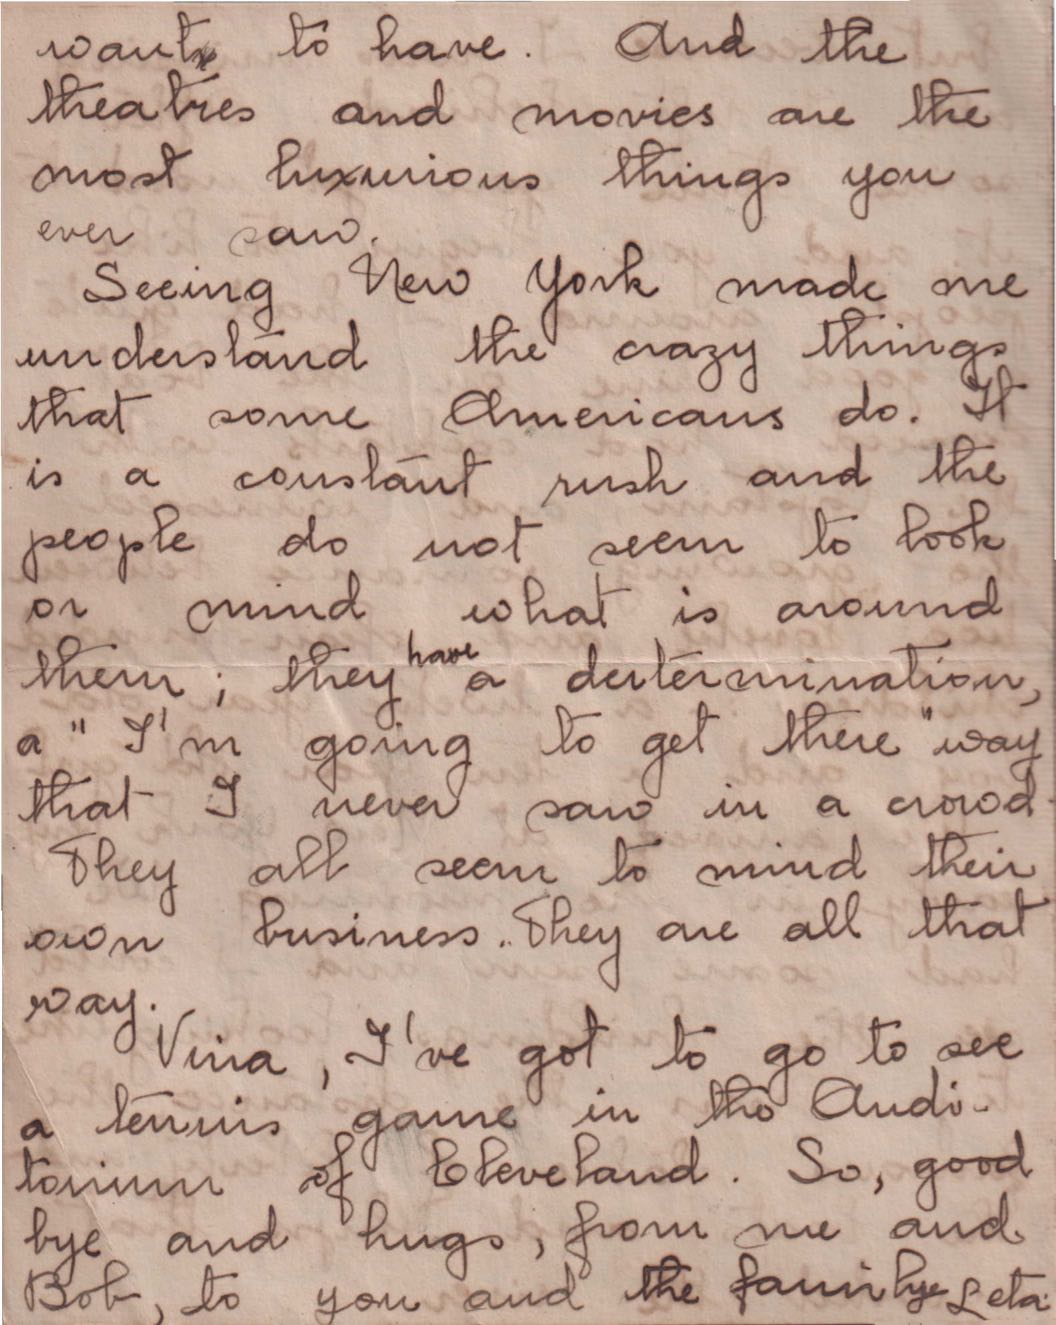 want to have. And the
theatres and movies are the
most luxurious things you
ever saw.
Seeing New York made me
understand the crazy things
that some Americans do. It
is a constant rush and the
people do not seem to look
or mind what is around
them; they have a determination,
a "I'm going to get there" way
that I never saw in a crowd
They all seem to mind their
own business. They are all that
way.
Vina, I've got to go to see
a tennis game in the Audi-
torium of Cleveland. So, good
bye and hugs, from me and
Bob, to you and the family Leta